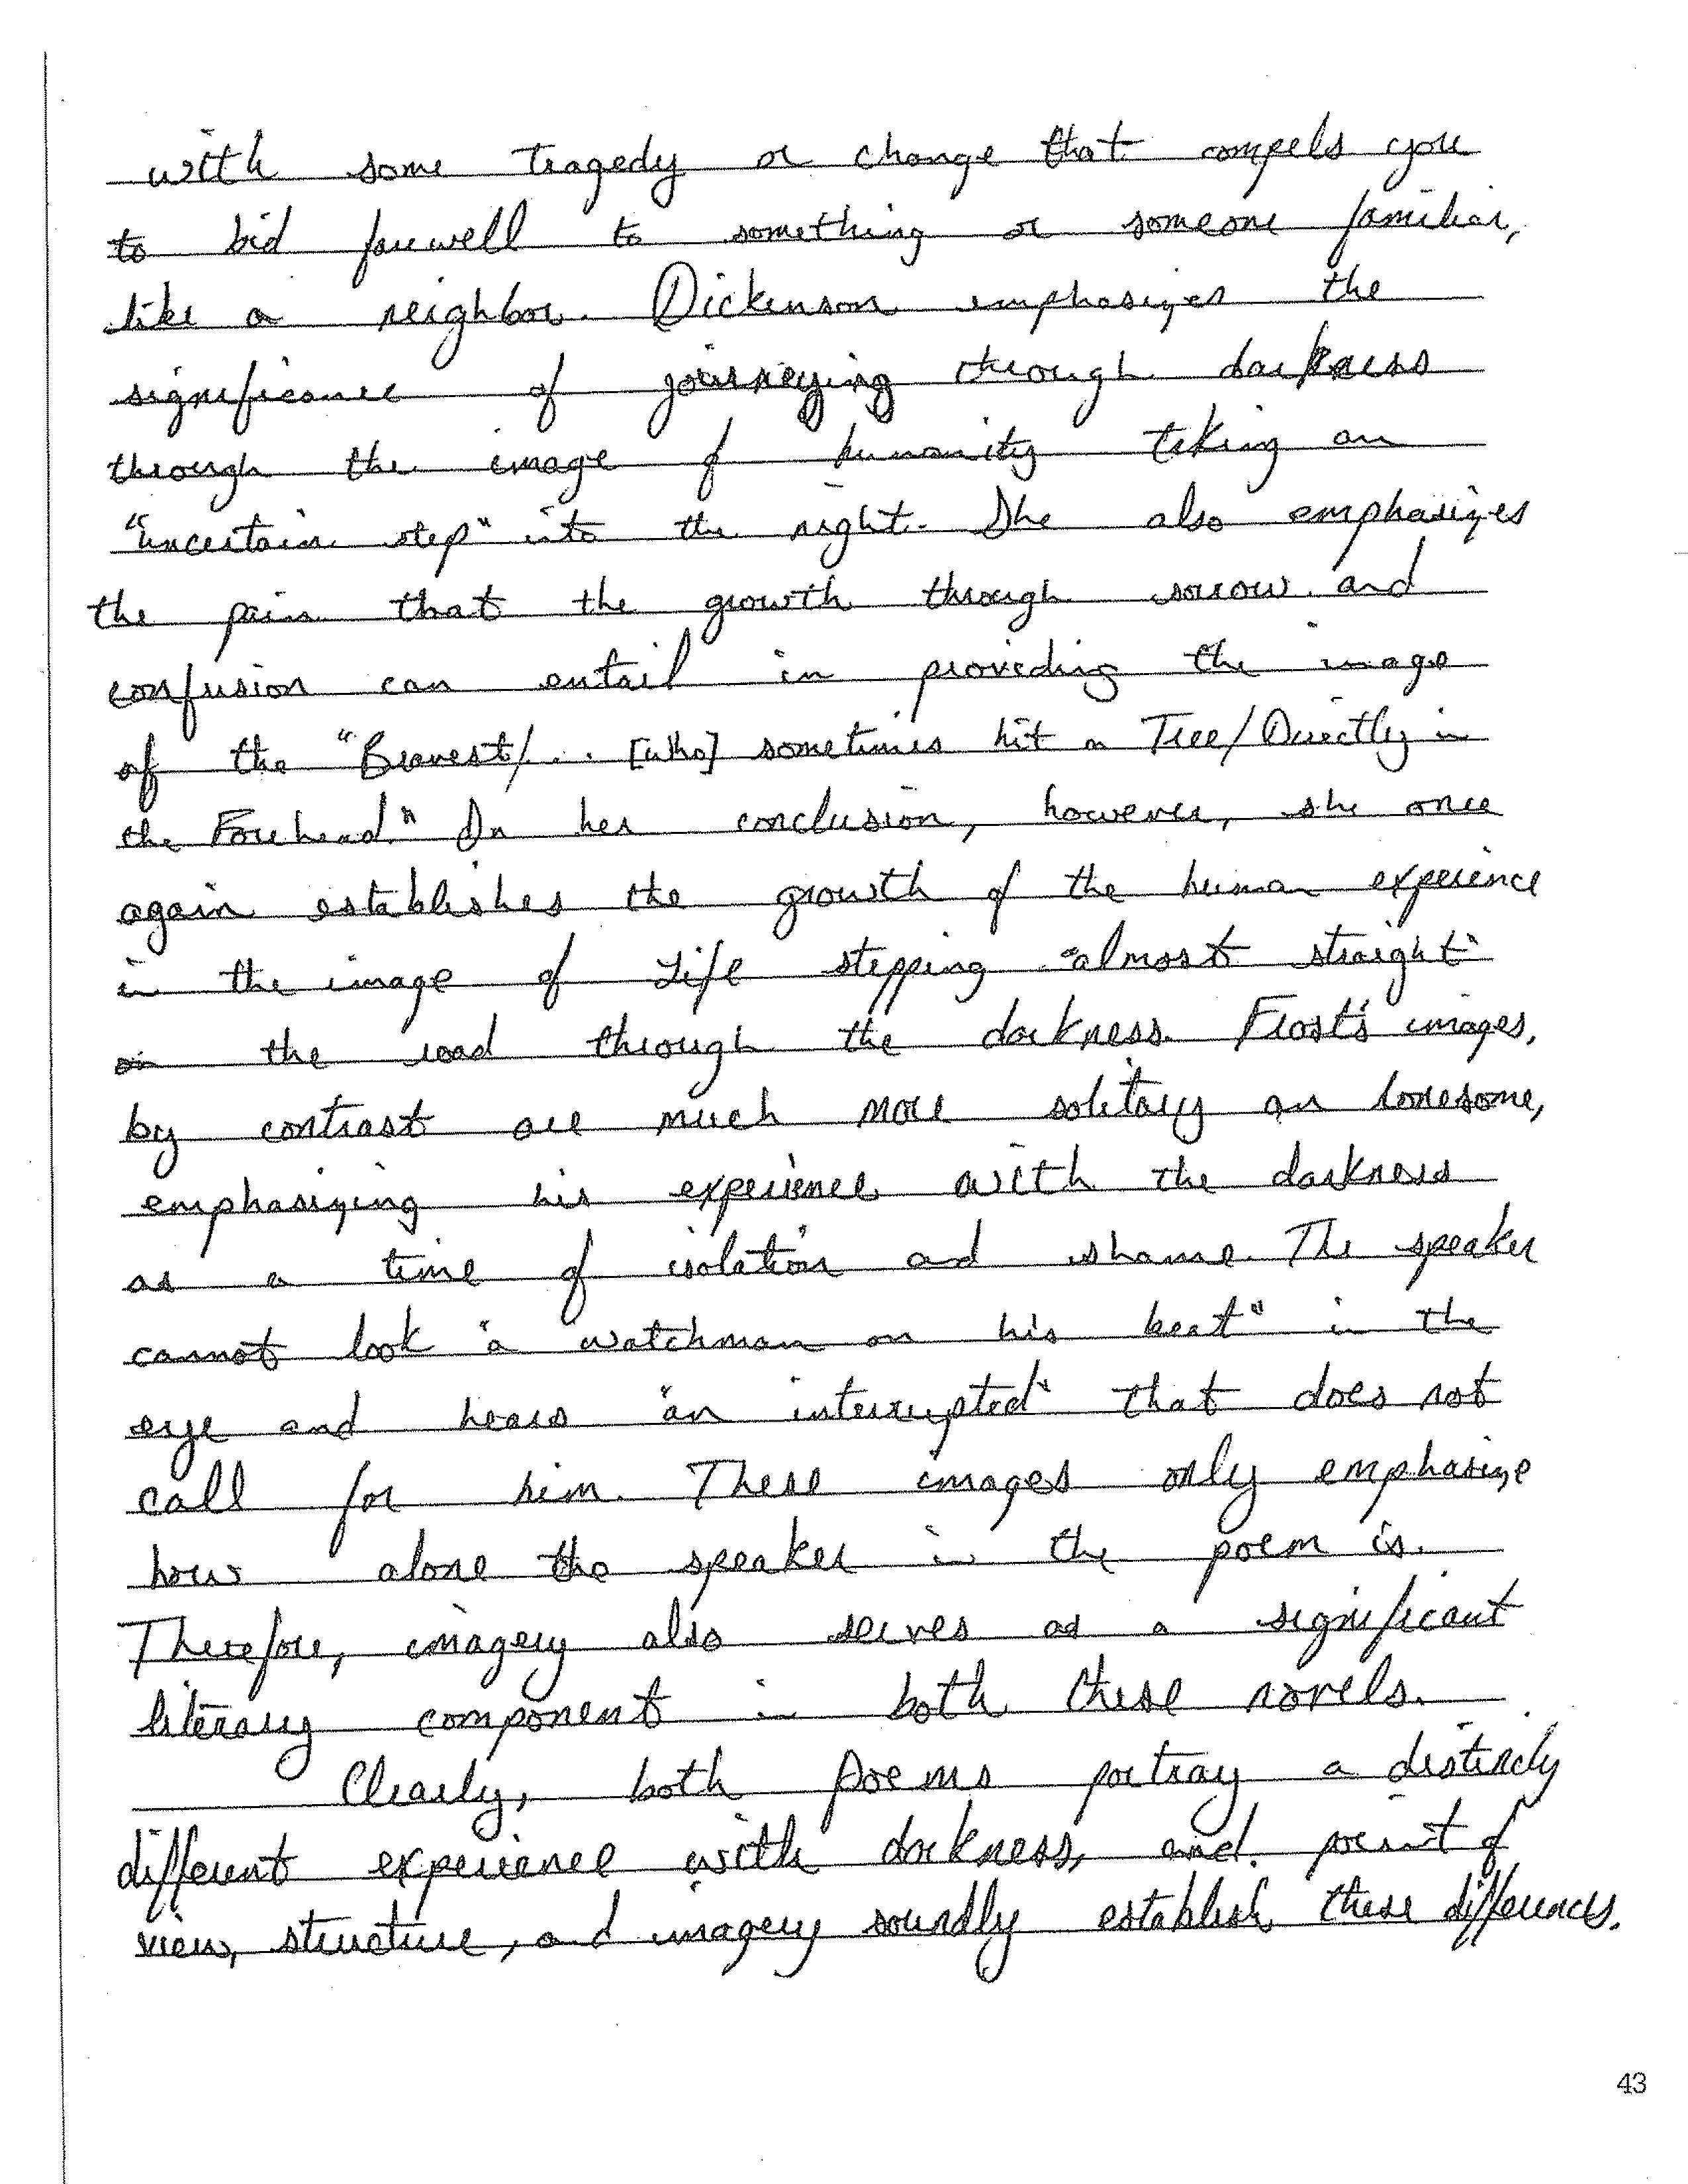 with some tragedy or change that compels you
to bid farewell to something or someone familiar,
like a neighbor. Dickenson emphasizes the
significance of journeying through darkness
through the image of humanity taking an
"uncertain step" into the night. She also emphasizes
the pain that the growth through sorrow and
confusion can entail in providing the image
of the "Bravest/... [who] sometimes hit a Tree/Directly in
the Forehead." In her conclusion, however, she once
again establishes the growth of the human experience
in the image of Life stepping "almost straight"
on the road through the darkness. Frost's images,
by contrast are much more solitary an lonesome,
emphasizing his experience with the darkness
as a time of isolation and shame. The speaker
cannot look "a watchman on his beat" in the
eye and hears "an interrupted" that does not
call for him. These images only emphasize
how alone the speaker in the poem is.
Therefore, imagery also serves as a significant
literary component in both these novels.
Clearly, both poems portray a distincly
different experience with darkness, and point of
view, structure, and imagery soundly establish these differences.
43